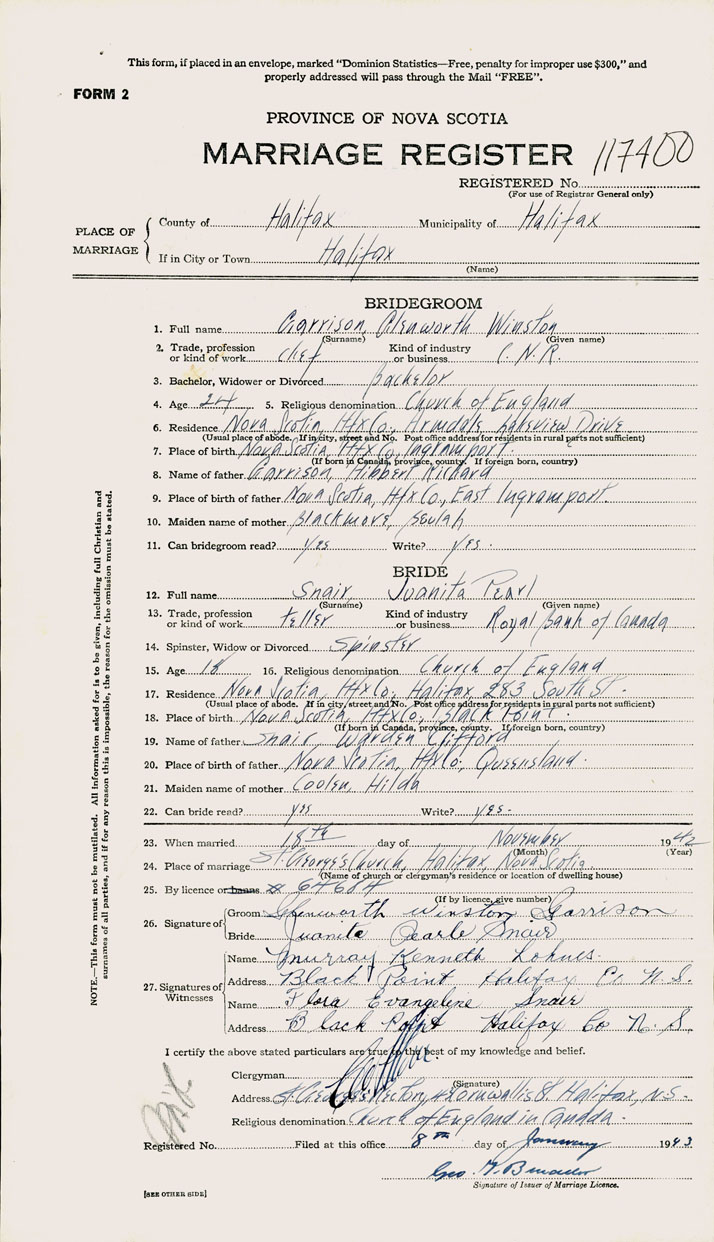 This form, if placed in an envelope, marked "Dominion Statistics—Free, penalty for improper use $300," and
properly addressed will pass through the Mail "FREE".
FORM 2
PROVINCE OF NOVA SCOTIA
MARRIAGE REGISTER 117400
REGISTERED No.
(For use of Registrar General only)
PLACE OF MARRIAGE
County of Halifax Municipality of Halifax
If in City or Town Halifax
(Name)
BRIDEGROOM
1. Full name Garrison, Glenworth Winston
(Surname) (Given name)
2. Trade, profession or kind of work chef Kind of industry or business C.N.R.
3. Bachelor, Widower or Divorced Bachelor
4. Age 24 5. Religious denomination Church of England
6. Residence Nova Scotia, Hfx Co., Armdale, Lakeview Drive
(Usual place of abode. If in city, street and No. Post office address for residents in rural parts not sufficient)
7. Place of birth Nova Scotia, Hfx Co., Ingramport.
(If born in Canada, province, county. If foreign born, country)
8. Name of father Garrison, Hibbert Richard
9. Place of birth of father Nova Scotia, Hfx Co., East Ingramport.
10. Maiden name of mother Blackmore, Beulah
11. Can bridegroom read? yes Write? yes.
BRIDE
12. Full name Snair, Juanita Pearl
(Surname) (Given name)
13. Trade, profession or kind of work teller Kind of industry or business Royal Bank of Canada
14. Spinster, Widow or Divorced Spinster
15. Age 18 16. Religious denomination Church of England
17. Residence Nova Scotia, Hfx Co., Halifax, 283 South St.
(Usual place of abode. If in city, street and No. Post office address for residents in rural parts not sufficient)
18. Place of birth Nova Scotia, Hfx Co., Black Point.
(If born in Canada, province, county. If foreign born, country)
19. Name of father Snair, Warden Clifford
20. Place of birth of father Nova Scotia, Hfx Co., Queensland.
21. Maiden name of mother Coolen, Hilda
22. Can bride read? yes Write? yes.
23. When married 18th day of November 1942
(Month) (Year)
24. Place of marriage St. George's Church, Halifax, Nova Scotia.
(Name of church or clergyman's residence or location of dwelling house)
25. By licence or banns # 64684
(If by licence, give number)
26. Signature of
Groom Glenworth Winston Garrison
Bride Juanita Pearle Snair
27. Signatures of Witnesses
Name Murray Kenneth Lohnes.
Address Black Point Halifax Co. N.S.
Name Flora Evangeline Snair
Address Black Point Halifax Co N.S.
I certify the above stated particulars are true to the best of my knowledge and belief.
Clergyman
(Signature)
Address St. George's Rectory, Cornwallis St. Halifax, N.S.
Religious denomination Church of England in Canada.
Registered No. Filed at this office 8th day of January 1943
Geo.
Signature of Issuer of Marriage Licence.
[SEE OTHER SIDE]
NOTE.—This form must not be mutilated. All Information asked for is to be given, including full Christian and
surnames of all parties, and if for any reason this is impossible, the reason for the omission must be stated.